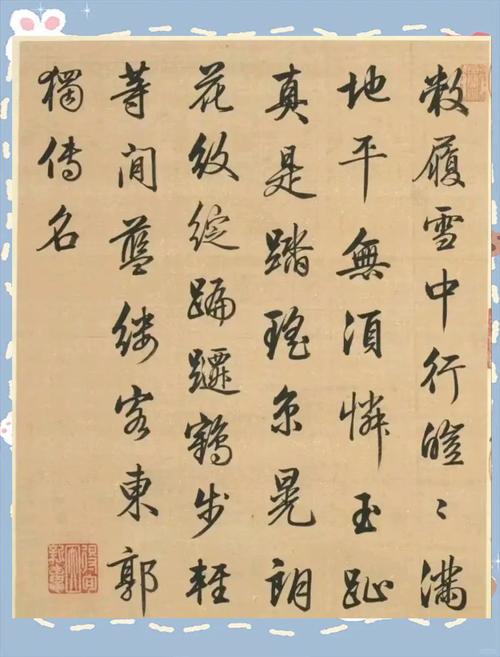 敝履雪中行皚〻滿
地平無須憐玉趾
真是踏瑤京晃朗
花紋綻蹁躚鶴步輕
等間藍縷客東郭
獨傳名